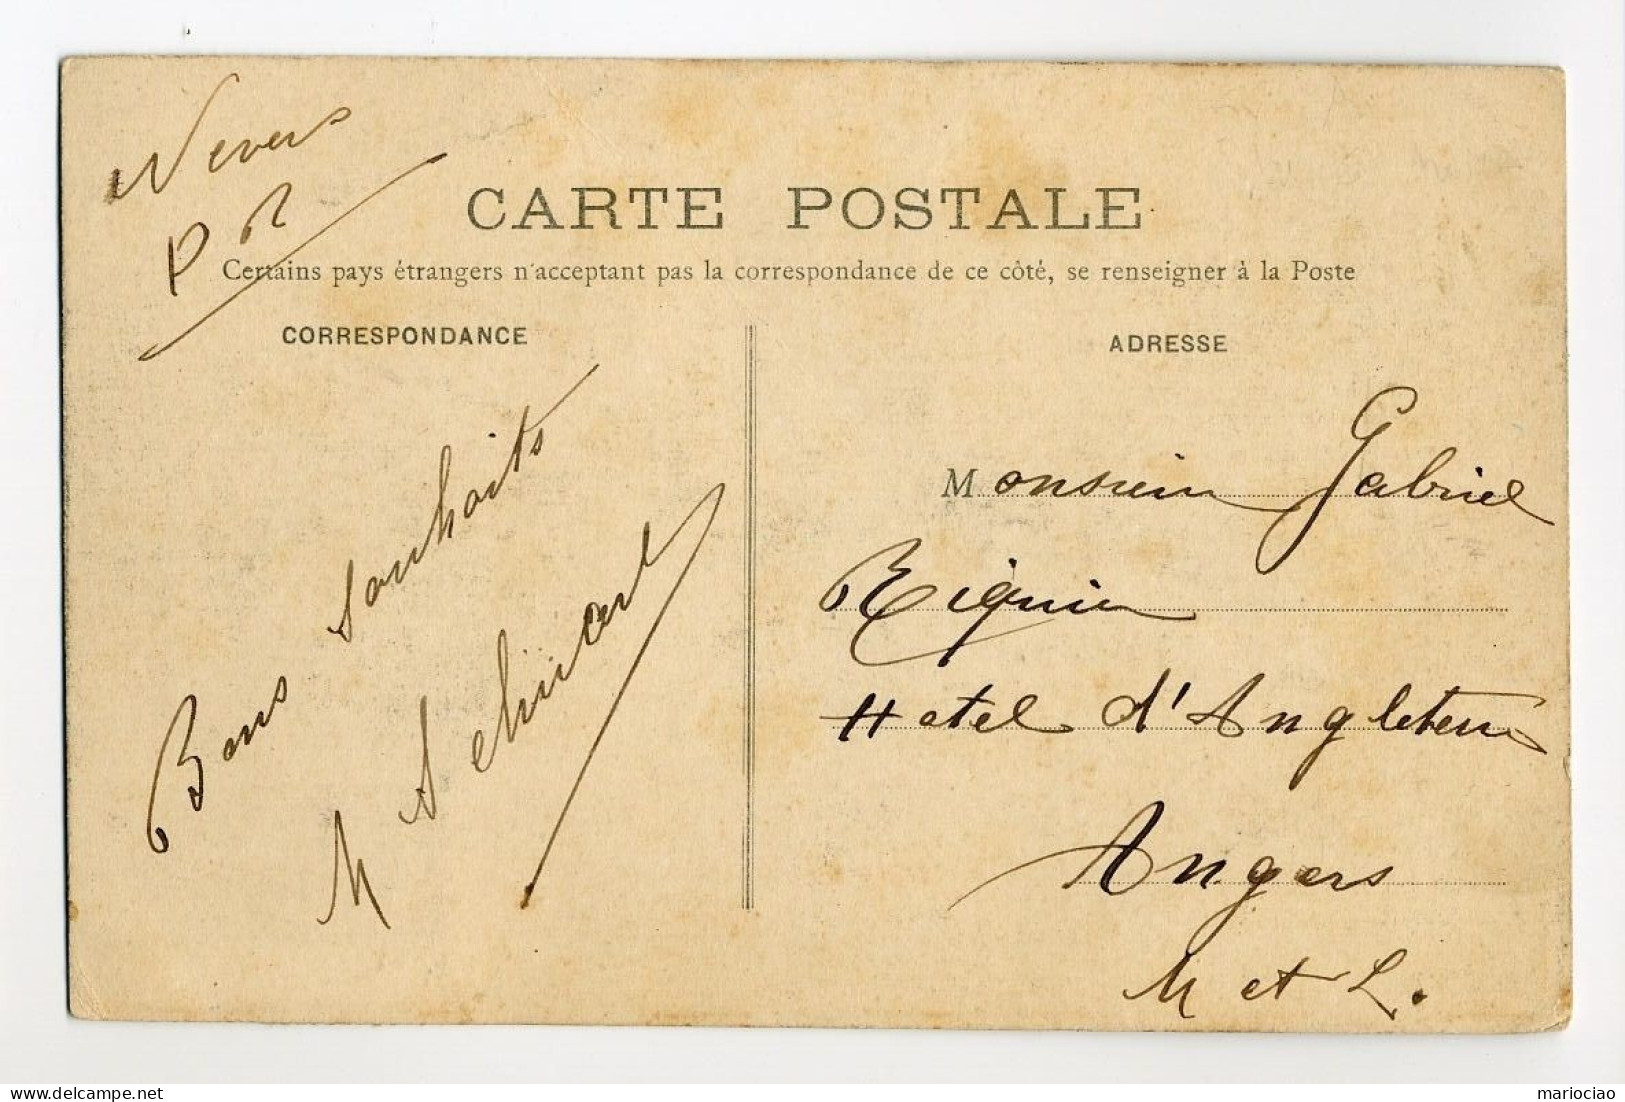 Nevers
P R
CARTE POSTALE
Certains pays étrangers n'acceptant pas la correspondance de ce côté, se renseigner à la Poste
CORRESPONDANCE
Bons Souhaits
M
ADRESSE
Monsieur Gabriel
Hotel d'Angleterre
Angers
M et L.
mariociao